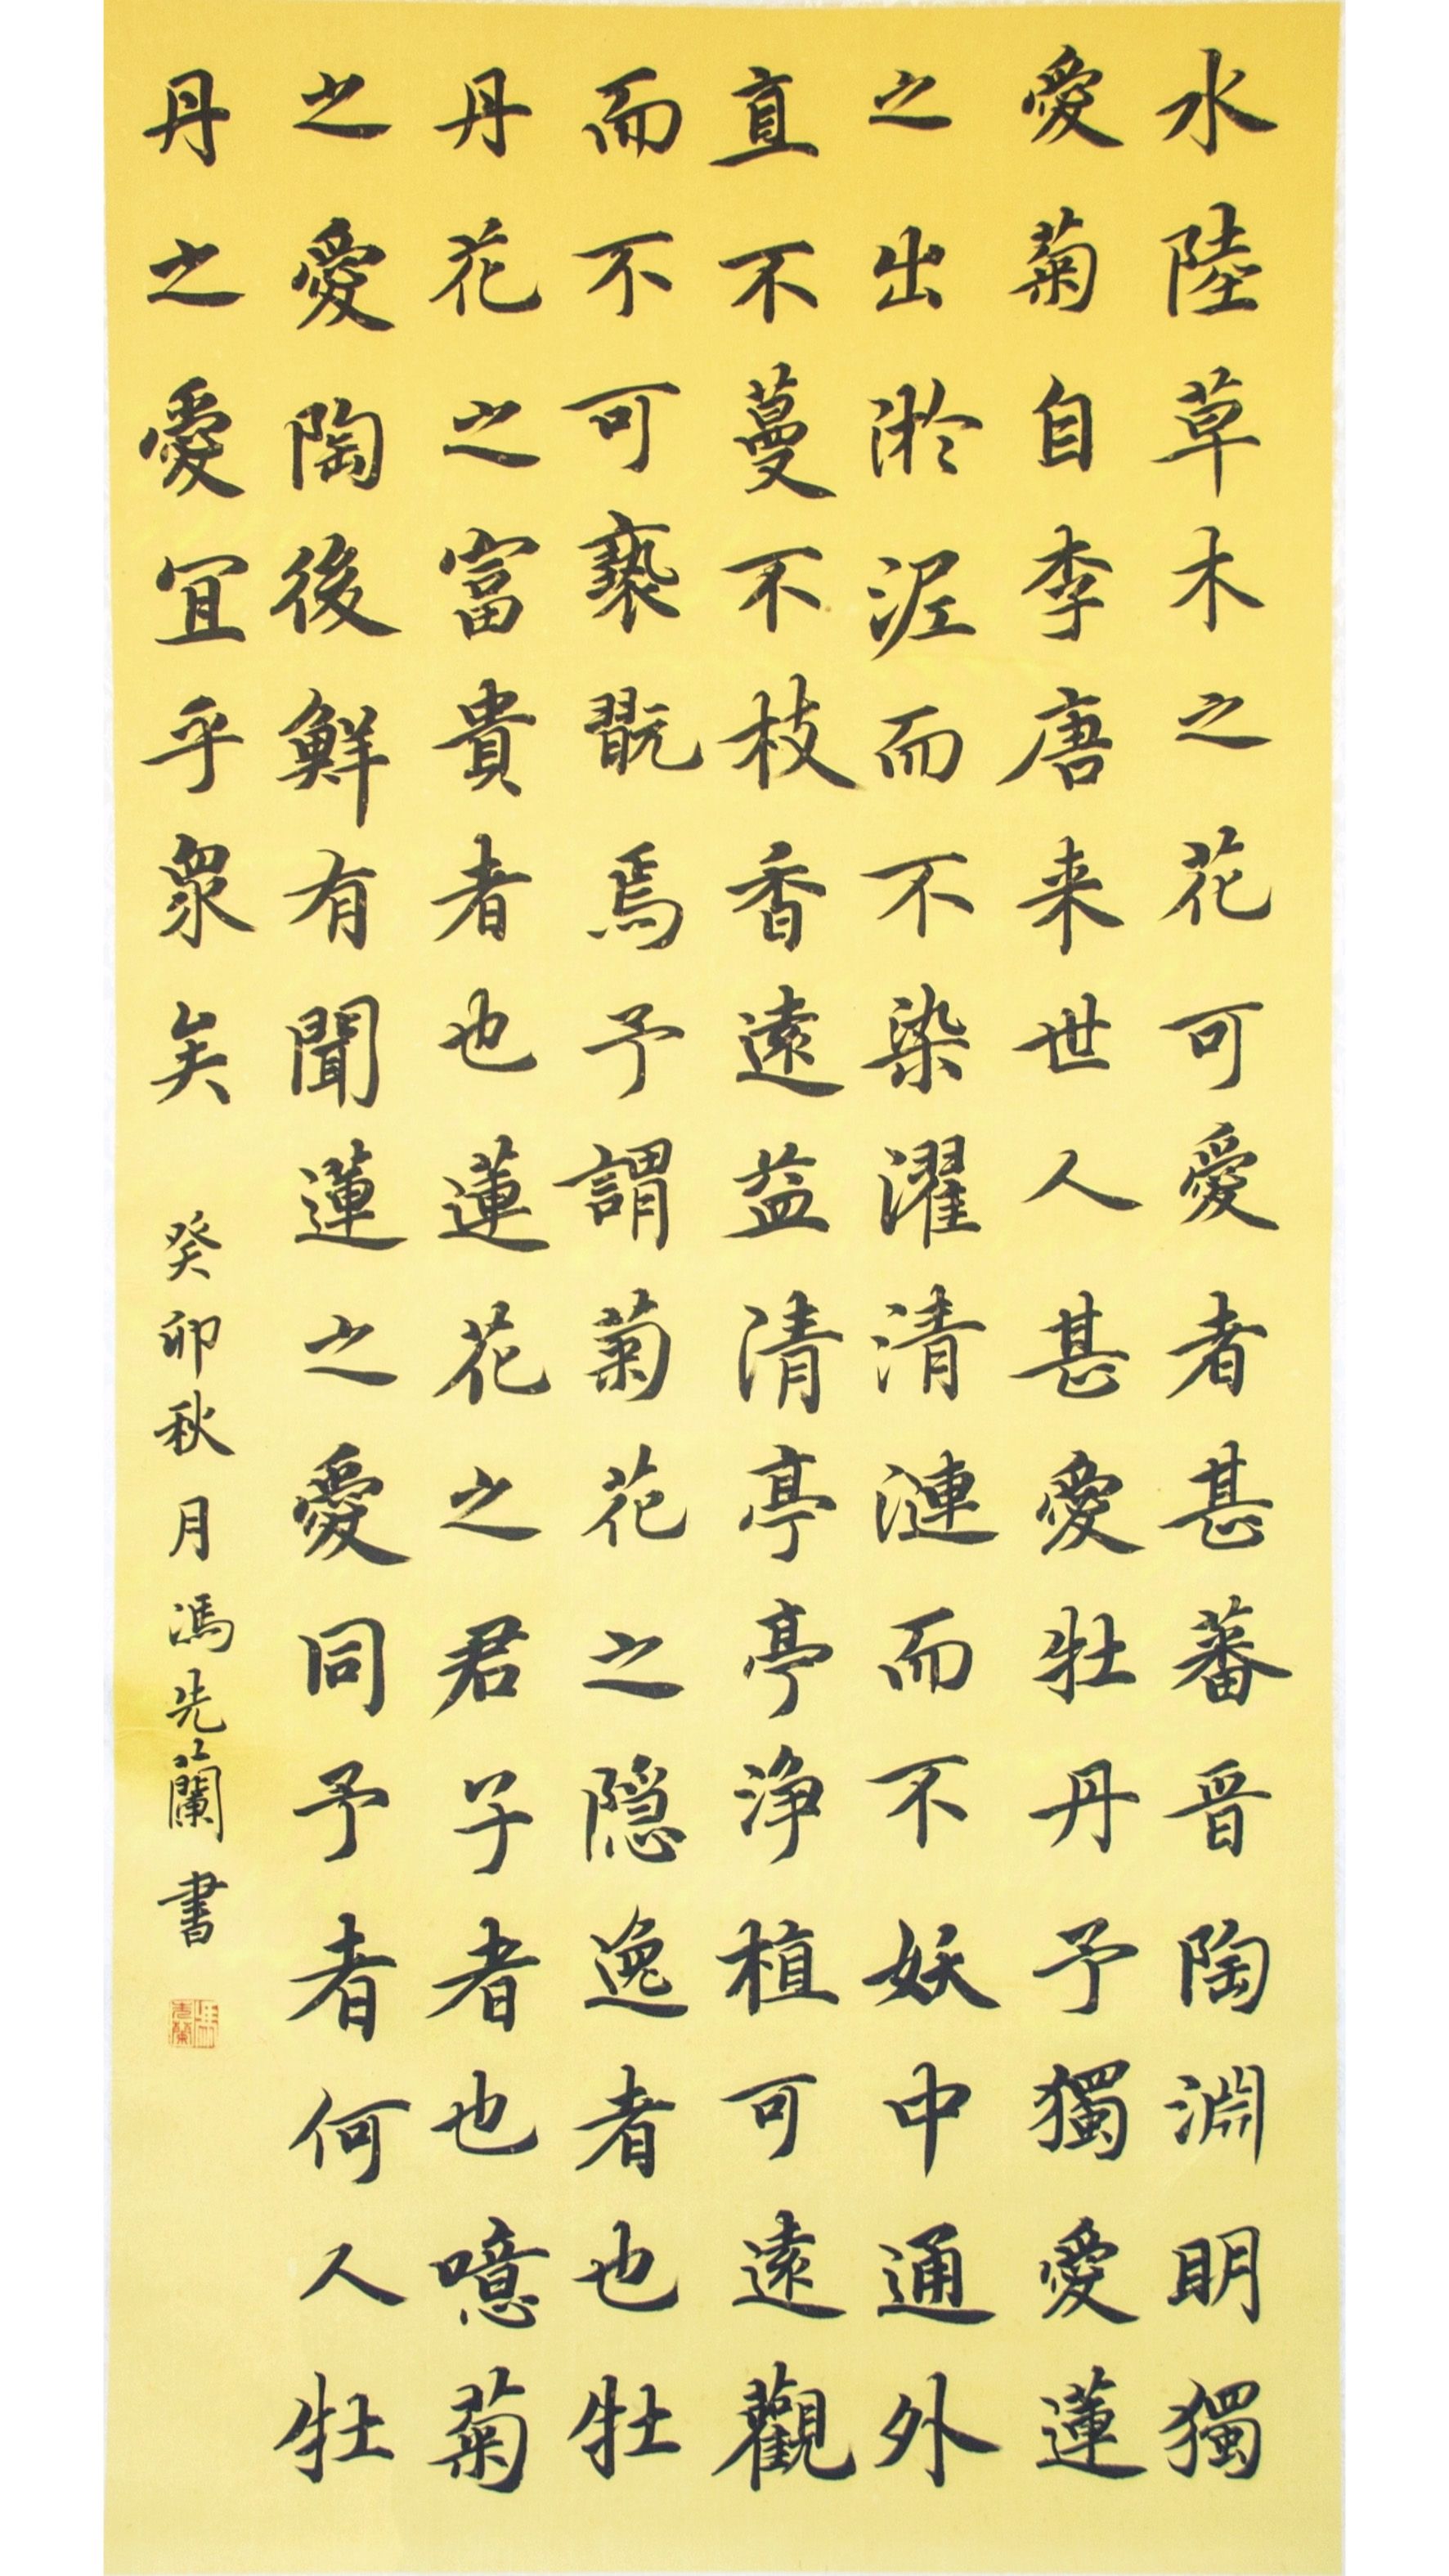 水陸草木之花可愛者甚蕃晋陶淵明獨
愛菊自李唐来世人甚愛牡丹予獨愛蓮
之出淤泥而不染濯清漣而不妖中通外
直不蔓不枝香遠益清亭亭浄植可遠觀
而不可褻翫焉予謂菊花之隠逸者也牡
丹花之富貴者也蓮花之君子者也噫菊
之愛陶後鮮有聞蓮之愛同予者何人牡
丹之愛宜乎衆矣
癸卯秋月馮先蘭書